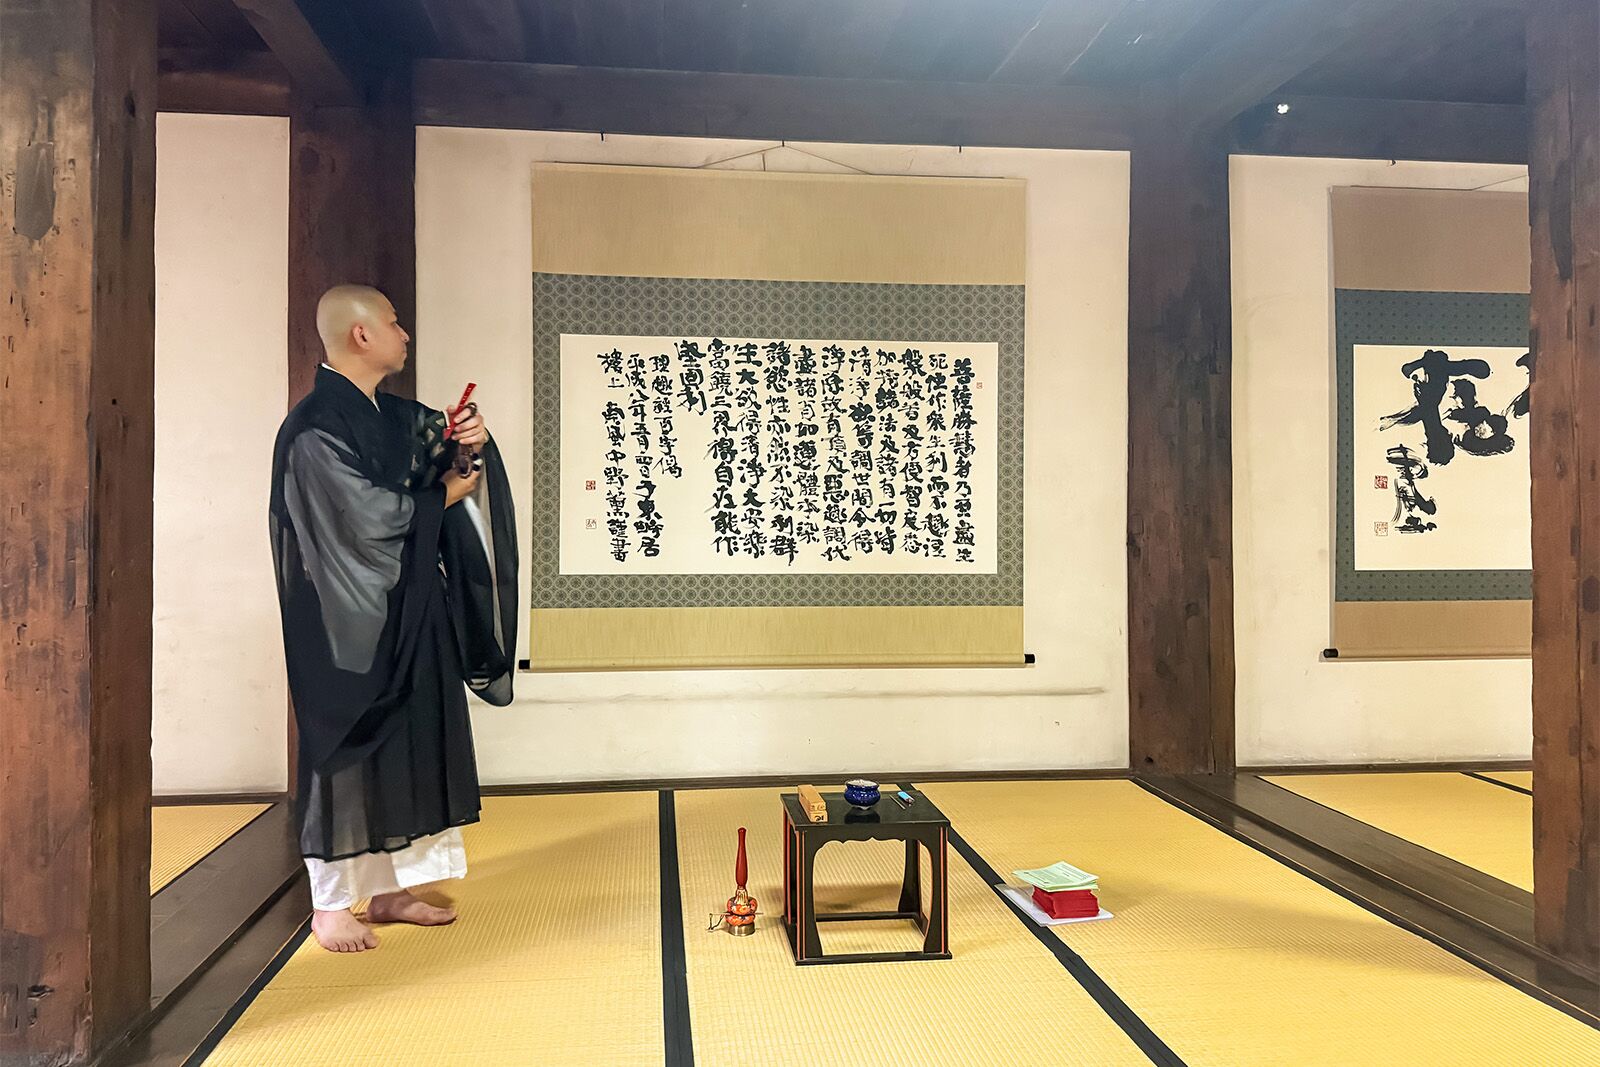 菩薩勝慧者乃至盡生
死恒作衆生利而不趣涅
槃般若及方便智度悉
加持諸法及諸有一切皆
清淨欲等調世間令得
淨除故有頂及惡趣調伏
盡諸有如蓮體本染
諸慾性亦然不染利群
生大欲得清淨大安樂
富饒三界得自在能作
堅固利
理趣經百字偈
平成八年五月四日于東
樓上 南風中野薫謹書
在
南風